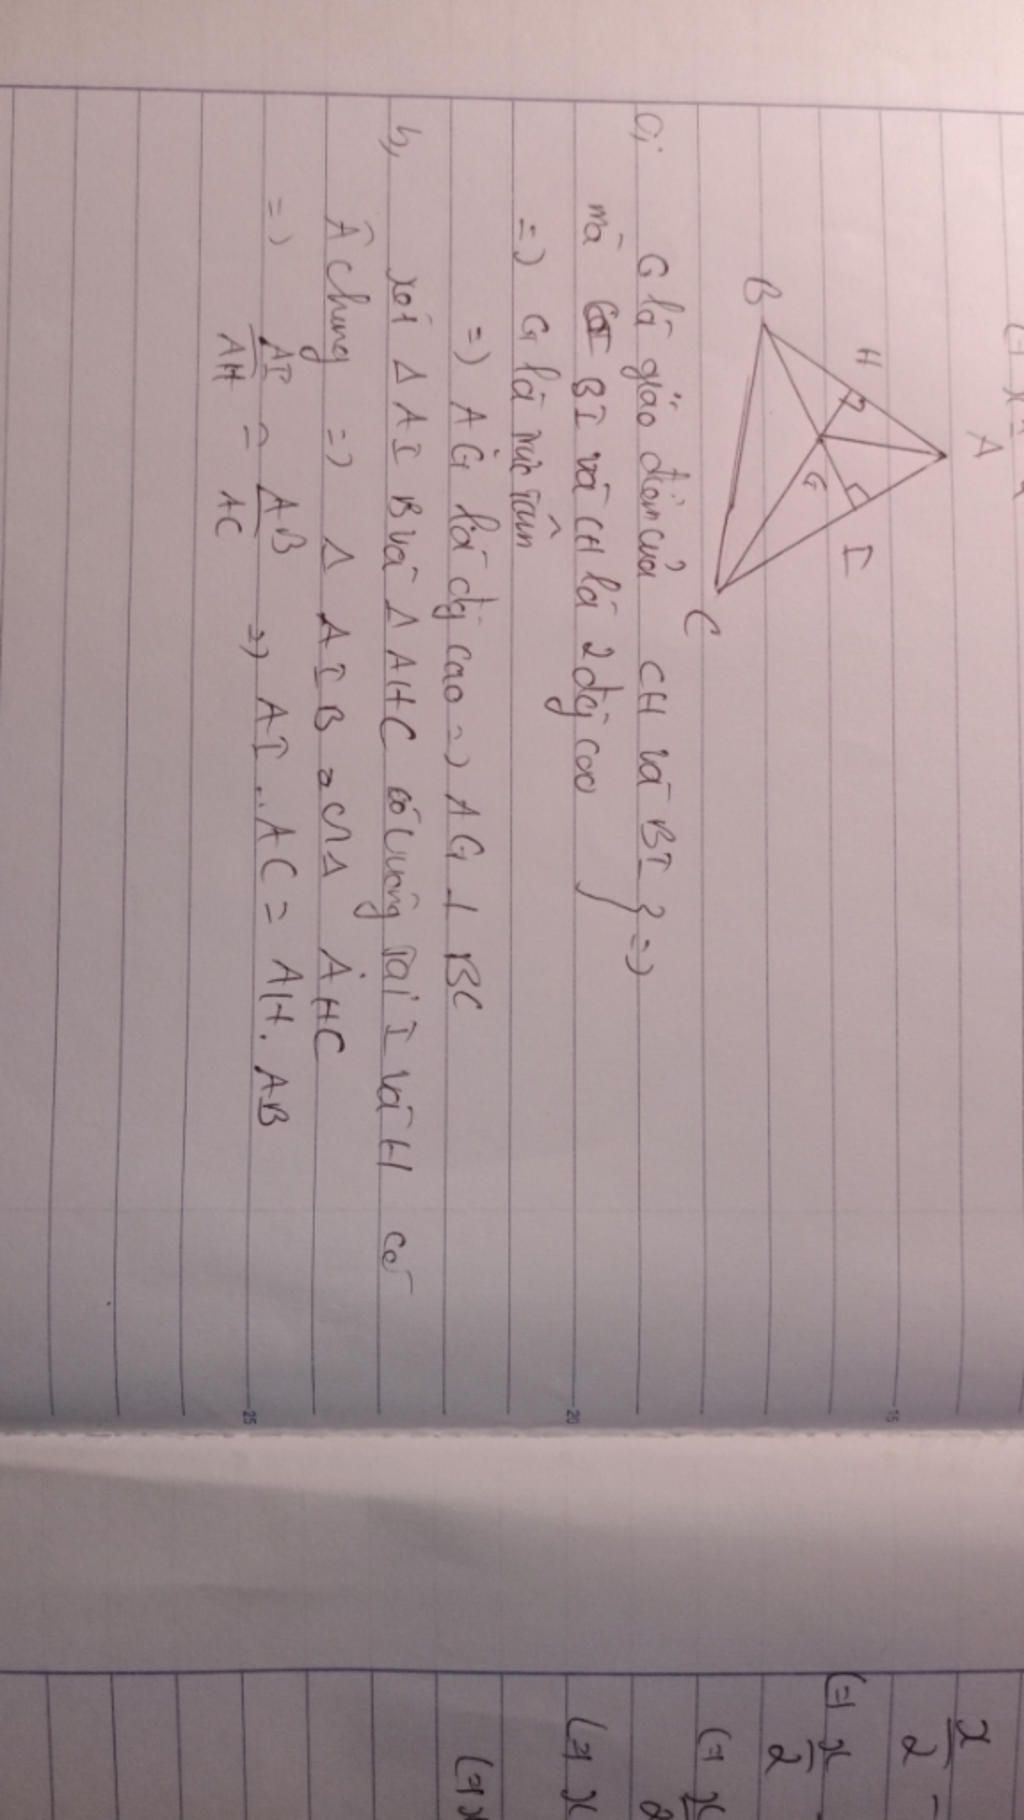 A
H
I
B
G
C
a, G là giao điểm của CH và BI } =)
mà BI và CH là 2 đg cao
=) G là trực tâm
=) AG là đg cao =) AG ⊥ BC
b, xét Δ AIB và Δ AHC có vuông tại I và H có
Â chung =) Δ AIB ∽ Δ AHC
=) AI/AH = AB/AC =) AI . AC = AH . AB
15
20
25
x/2 -
(=) x/2
(=) x/2
(=) x
(=) x